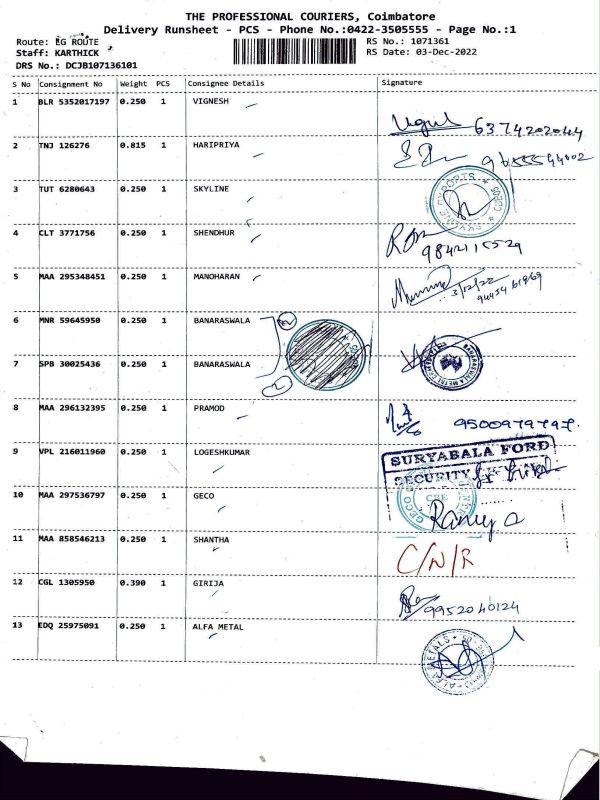 THE PROFESSIONAL COURIERS, Coimbatore
Delivery Runsheet - PCS - Phone No.:0422-3505555 - Page No.:1
Route: EG ROUTE
RS No.: 1071361
Staff: KARTHICK
RS Date: 03-Dec-2022
DRS No.: DCJB107136101
S No Consignment No Weight PCS Consignee Details Signature
1 BLR 5352017197 0.250 1 VIGNESH
6374202044
2 TNJ 126276 0.815 1 HARIPRIYA
3 TUT 6280643 0.250 1 SKYLINE
4 CLT 3771756 0.250 1 SHENDHUR
9842115529
5 MAA 295348451 0.250 1 MANOHARAN
3/12/22
6 MNR 59645950 0.250 1 BANARASWALA
7 SPB 30025436 0.250 1 BANARASWALA
8 MAA 296132395 0.250 1 PRAMOD
9 VPL 216011960 0.250 1 LOGESHKUMAR
SURYABALA FORD
SECURITY
10 MAA 297536797 0.250 1 GECO
GECO
CBE
Ramya
11 MAA 858546213 0.250 1 SHANTHA
C/N/R
12 CGL 1305950 0.390 1 GIRIJA
9952040124
13 EDQ 25975091 0.250 1 ALFA METAL
ALFA METALS